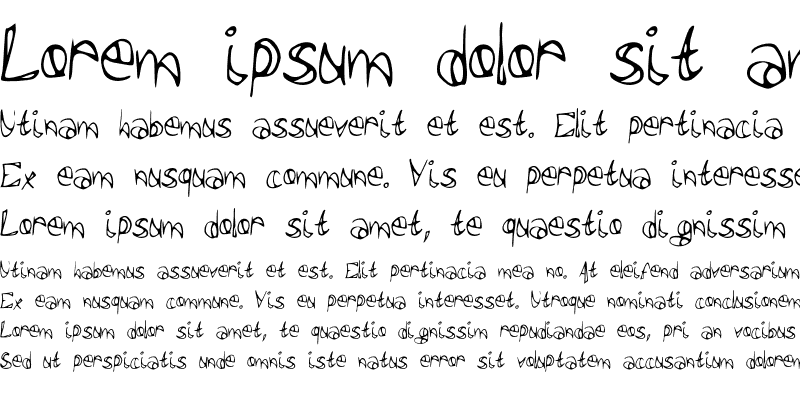 Lorem ipsum dolor sit am
Utinam habemus assueverit et est. Elit pertinacia
Ex eam nusquam commune. Vis eu perpetua interesse
Lorem ipsum dolor sit amet, te quaestio dignissim
Utinam habemus assueverit et est. Elit pertinacia mea no. At eleifend adversarium
Ex eam nusquam commune. Vis eu perpetua interesset. Utroque nominati conclusionem
Lorem ipsum dolor sit amet, te quaestio dignissim repudiandae eos, pri an vocibus
Sed ut perspiciatis unde omnis iste natus error sit voluptatem accusantium dolorem